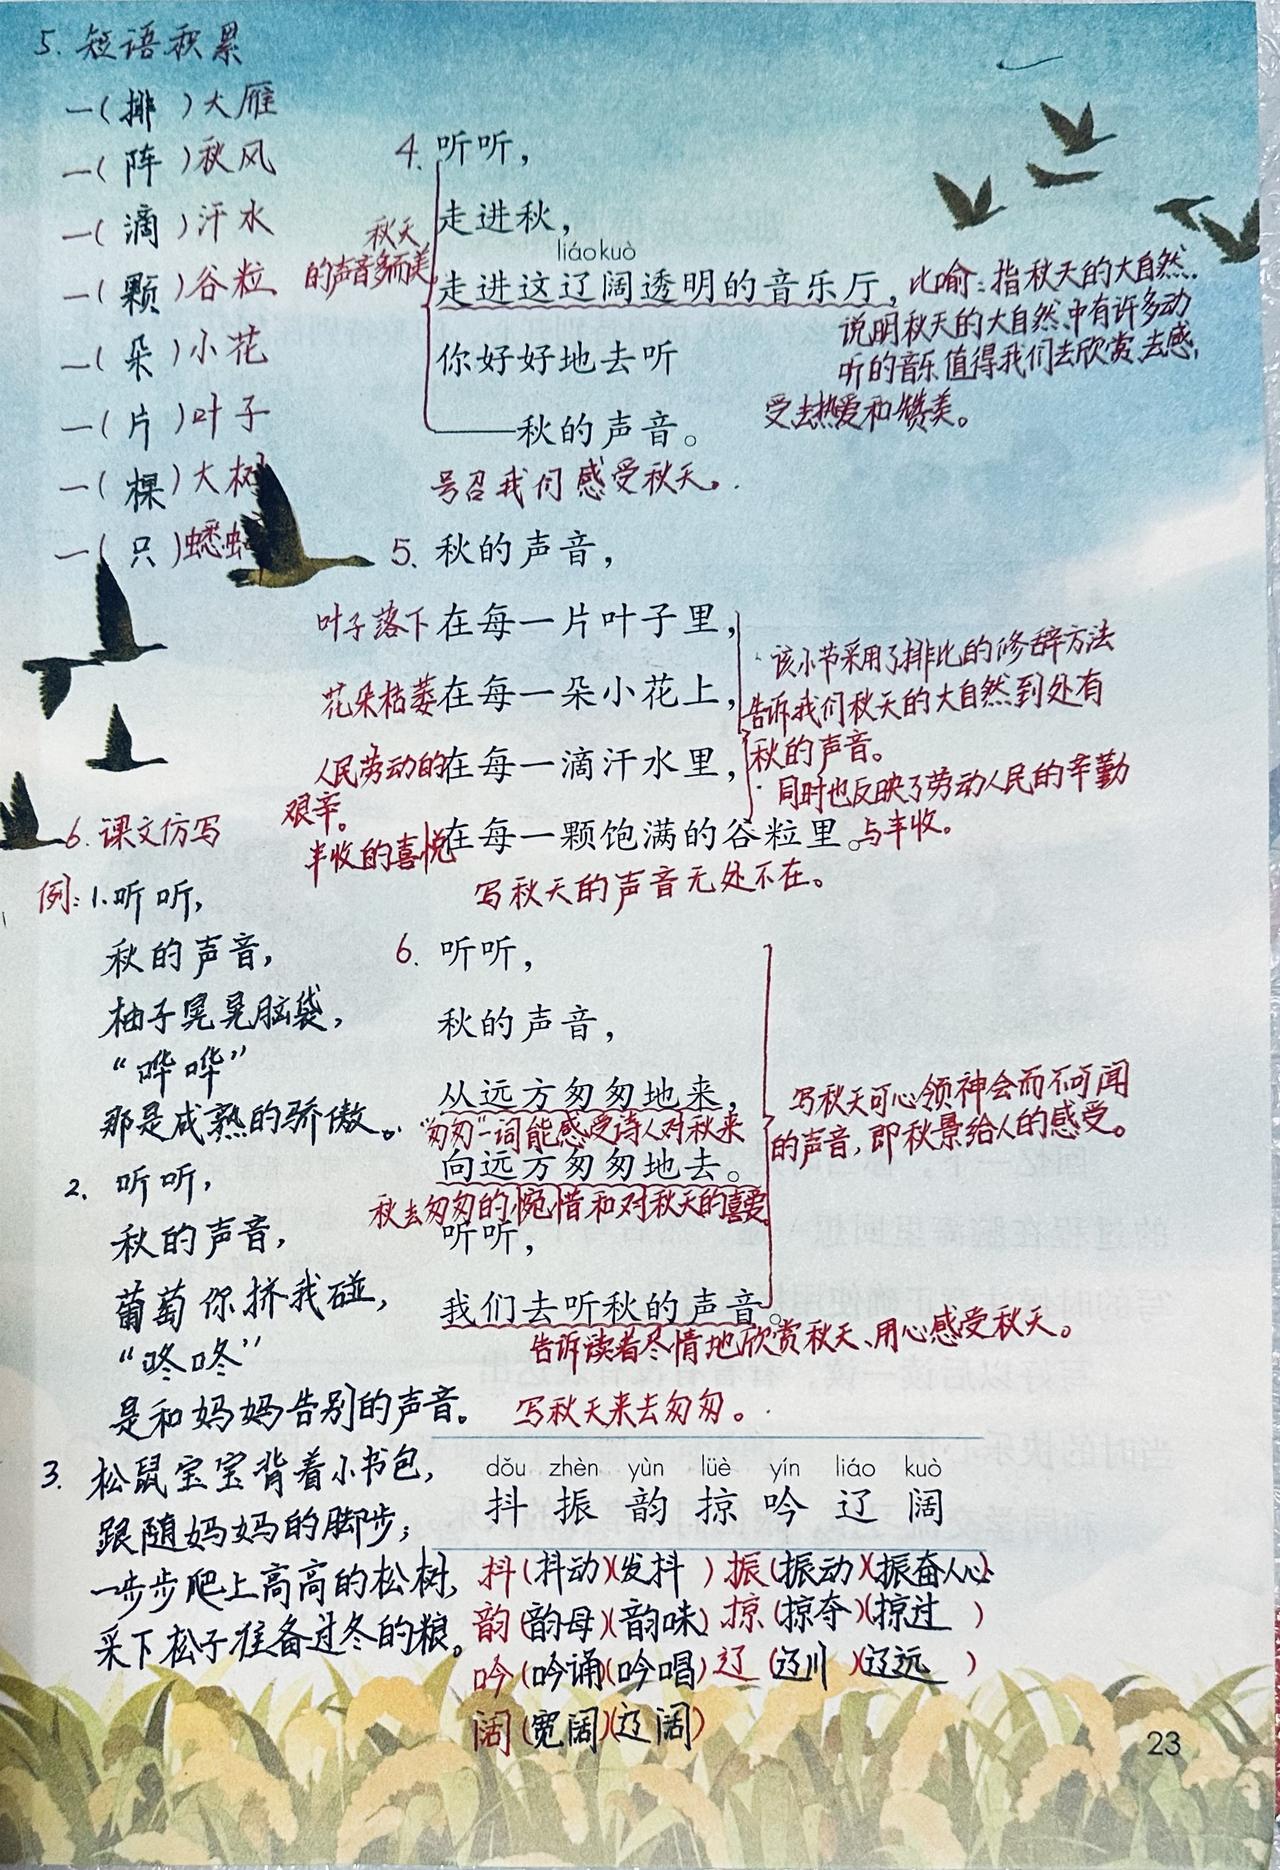 5. 短语积累
一(排)大雁
一(阵)秋风
一(滴)汗水
一(颗)谷粒
一(朵)小花
一(片)叶子
一(棵)大树
一(只)蟋蟀
4. 听听，
走进秋，
秋天
的声音多而美
liáo kuò
走进这辽阔透明的音乐厅，
比喻：指秋天的大自然.
说明秋天的大自然中有许多动
听的音乐值得我们去欣赏、去感
受去热爱和赞美。
你好好地去听
——秋的声音。
号召我们感受秋天。
5、秋的声音，
叶子落下 在每一片叶子里，
花朵枯萎 在每一朵小花上，
人民劳动的 在每一滴汗水里，
艰辛。
丰收的喜悦 在每一颗饱满的谷粒里。
该小节采用了排比的修辞方法
告诉我们秋天的大自然到处有
秋的声音。
同时也反映了劳动人民的辛勤
与丰收。
写秋天的声音无处不在。
6. 听听，
秋的声音，
从远方匆匆地来，
“匆匆”一词能感受诗人对秋来
向远方匆匆地去。
秋去匆匆的惋惜和对秋天的喜爱
听听，
我们去听秋的声音。
写秋天可心领神会而不可闻
的声音，即秋景给人的感受。
告诉读着尽情地欣赏秋天、用心感受秋天。
写秋天来去匆匆。
6. 课文仿写
例：1. 听听，
秋的声音，
柚子晃晃脑袋，
“哗哗”
那是成熟的骄傲。
2、听听，
秋的声音，
葡萄你挤我碰，
“咚咚”
是和妈妈告别的声音。
3. 松鼠宝宝背着小书包，
跟随妈妈的脚步；
一步步爬上高高的松树，
采下松子准备过冬的粮。
dǒu zhèn yùn lüè yín liáo kuò
抖 振 韵 掠 吟 辽 阔
抖(抖动)(发抖) 振(振动)(振奋人心)
韵(韵母)(韵味) 掠(掠夺)(掠过)
吟(吟诵)(吟唱) 辽(辽川)(辽远)
阔(宽阔)(辽阔)
23